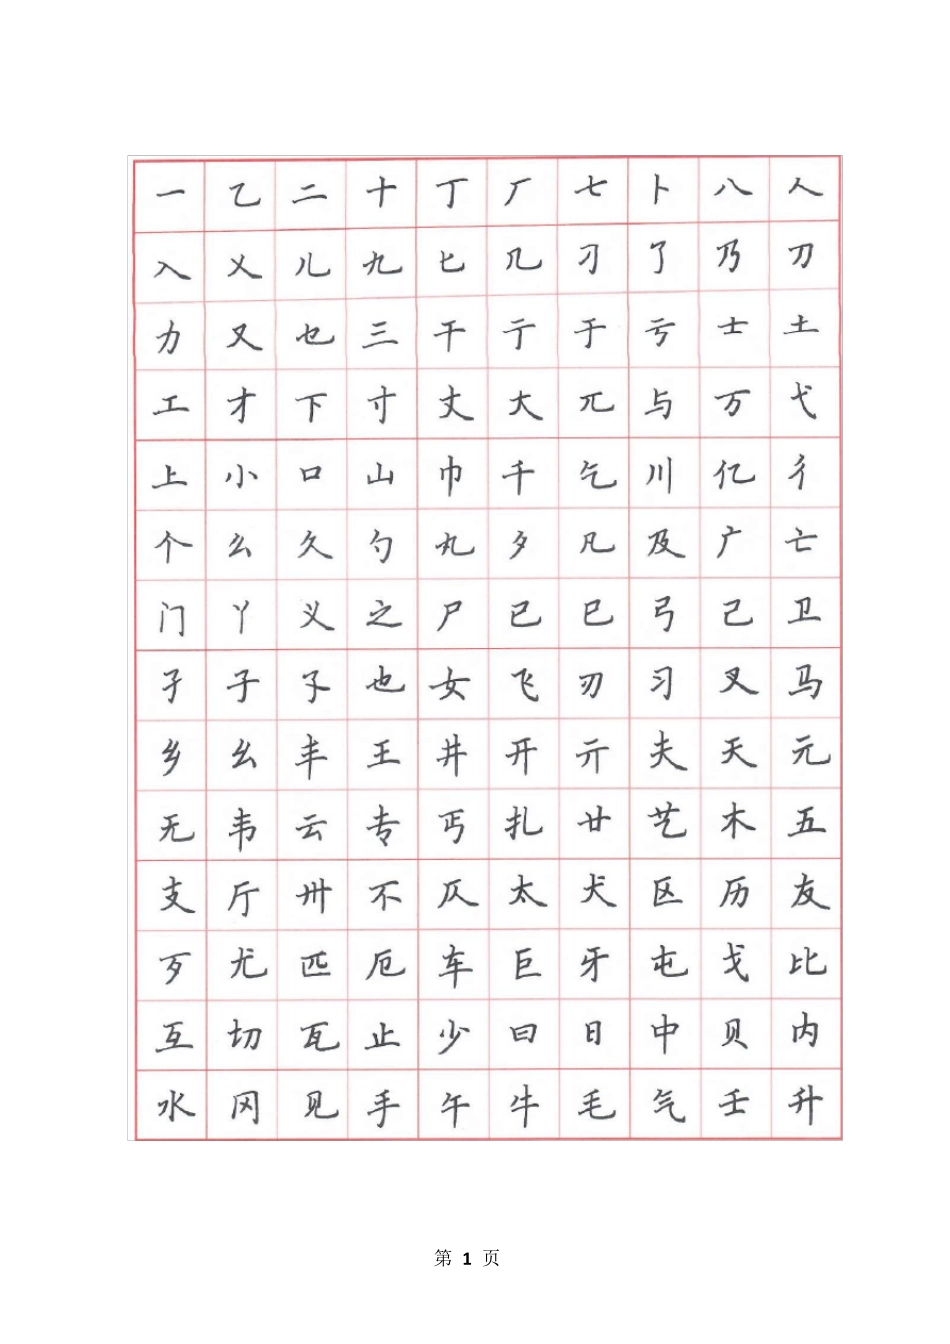 一乙二十丁厂七卜八人
入乂儿九匕几刁了乃刀
力又乜三干亍于亏士土
工才下寸丈大兀与万弋
上小口山巾千乞川亿彳
个么久勺丸夕凡及广亡
门丫义之尸已巳弓己卫
孑子孓也女飞刃习叉马
乡幺丰王井开亓夫天元
无韦云专丐扎廿艺木五
支厅卅不仄太犬区历友
歹尤匹厄车巨牙屯戈比
互切瓦止少曰日中贝内
水冈见手午牛毛气壬升
第 1 页